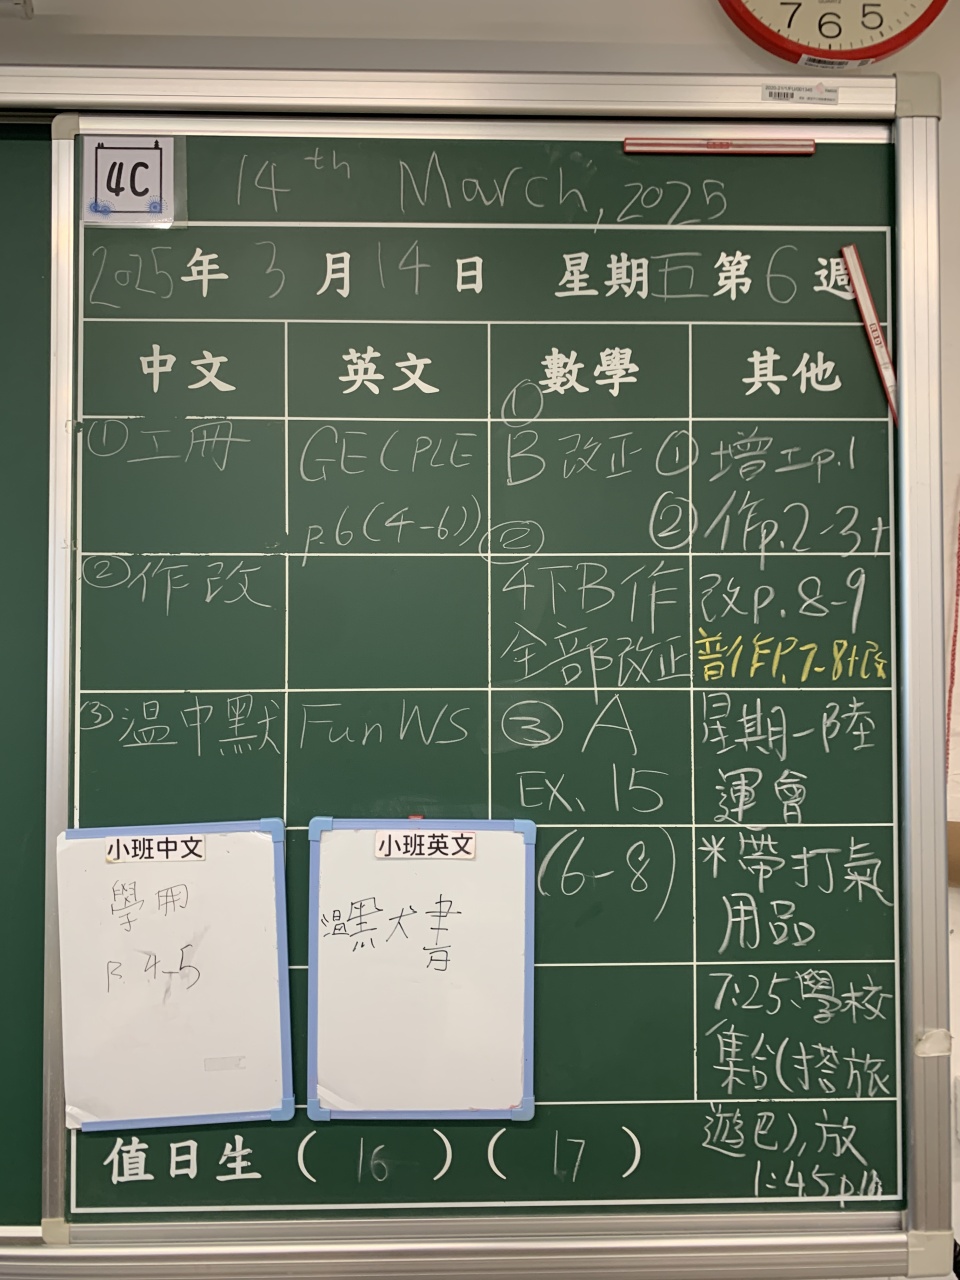 7 6 5
4C
14th March, 2025
2025年3月14日 星期五第6週
中文
①工冊
②作改
③温中默
英文
GE(PLE
p.6(4-6))
Fun WS
數學
①
B改正
②
4下B作
全部改正
③A
EX. 15
(6-8)
其他
①增工p.1
②作p.2-3+
改p.8-9
普作P.7-8+改
星期一陸
運會
*帶打氣
用品
7:25學校
集合(搭旅
遊巴),放
1:45p.m
小班中文
學用
P.4-5
小班英文
温默書
值日生(16)(17)